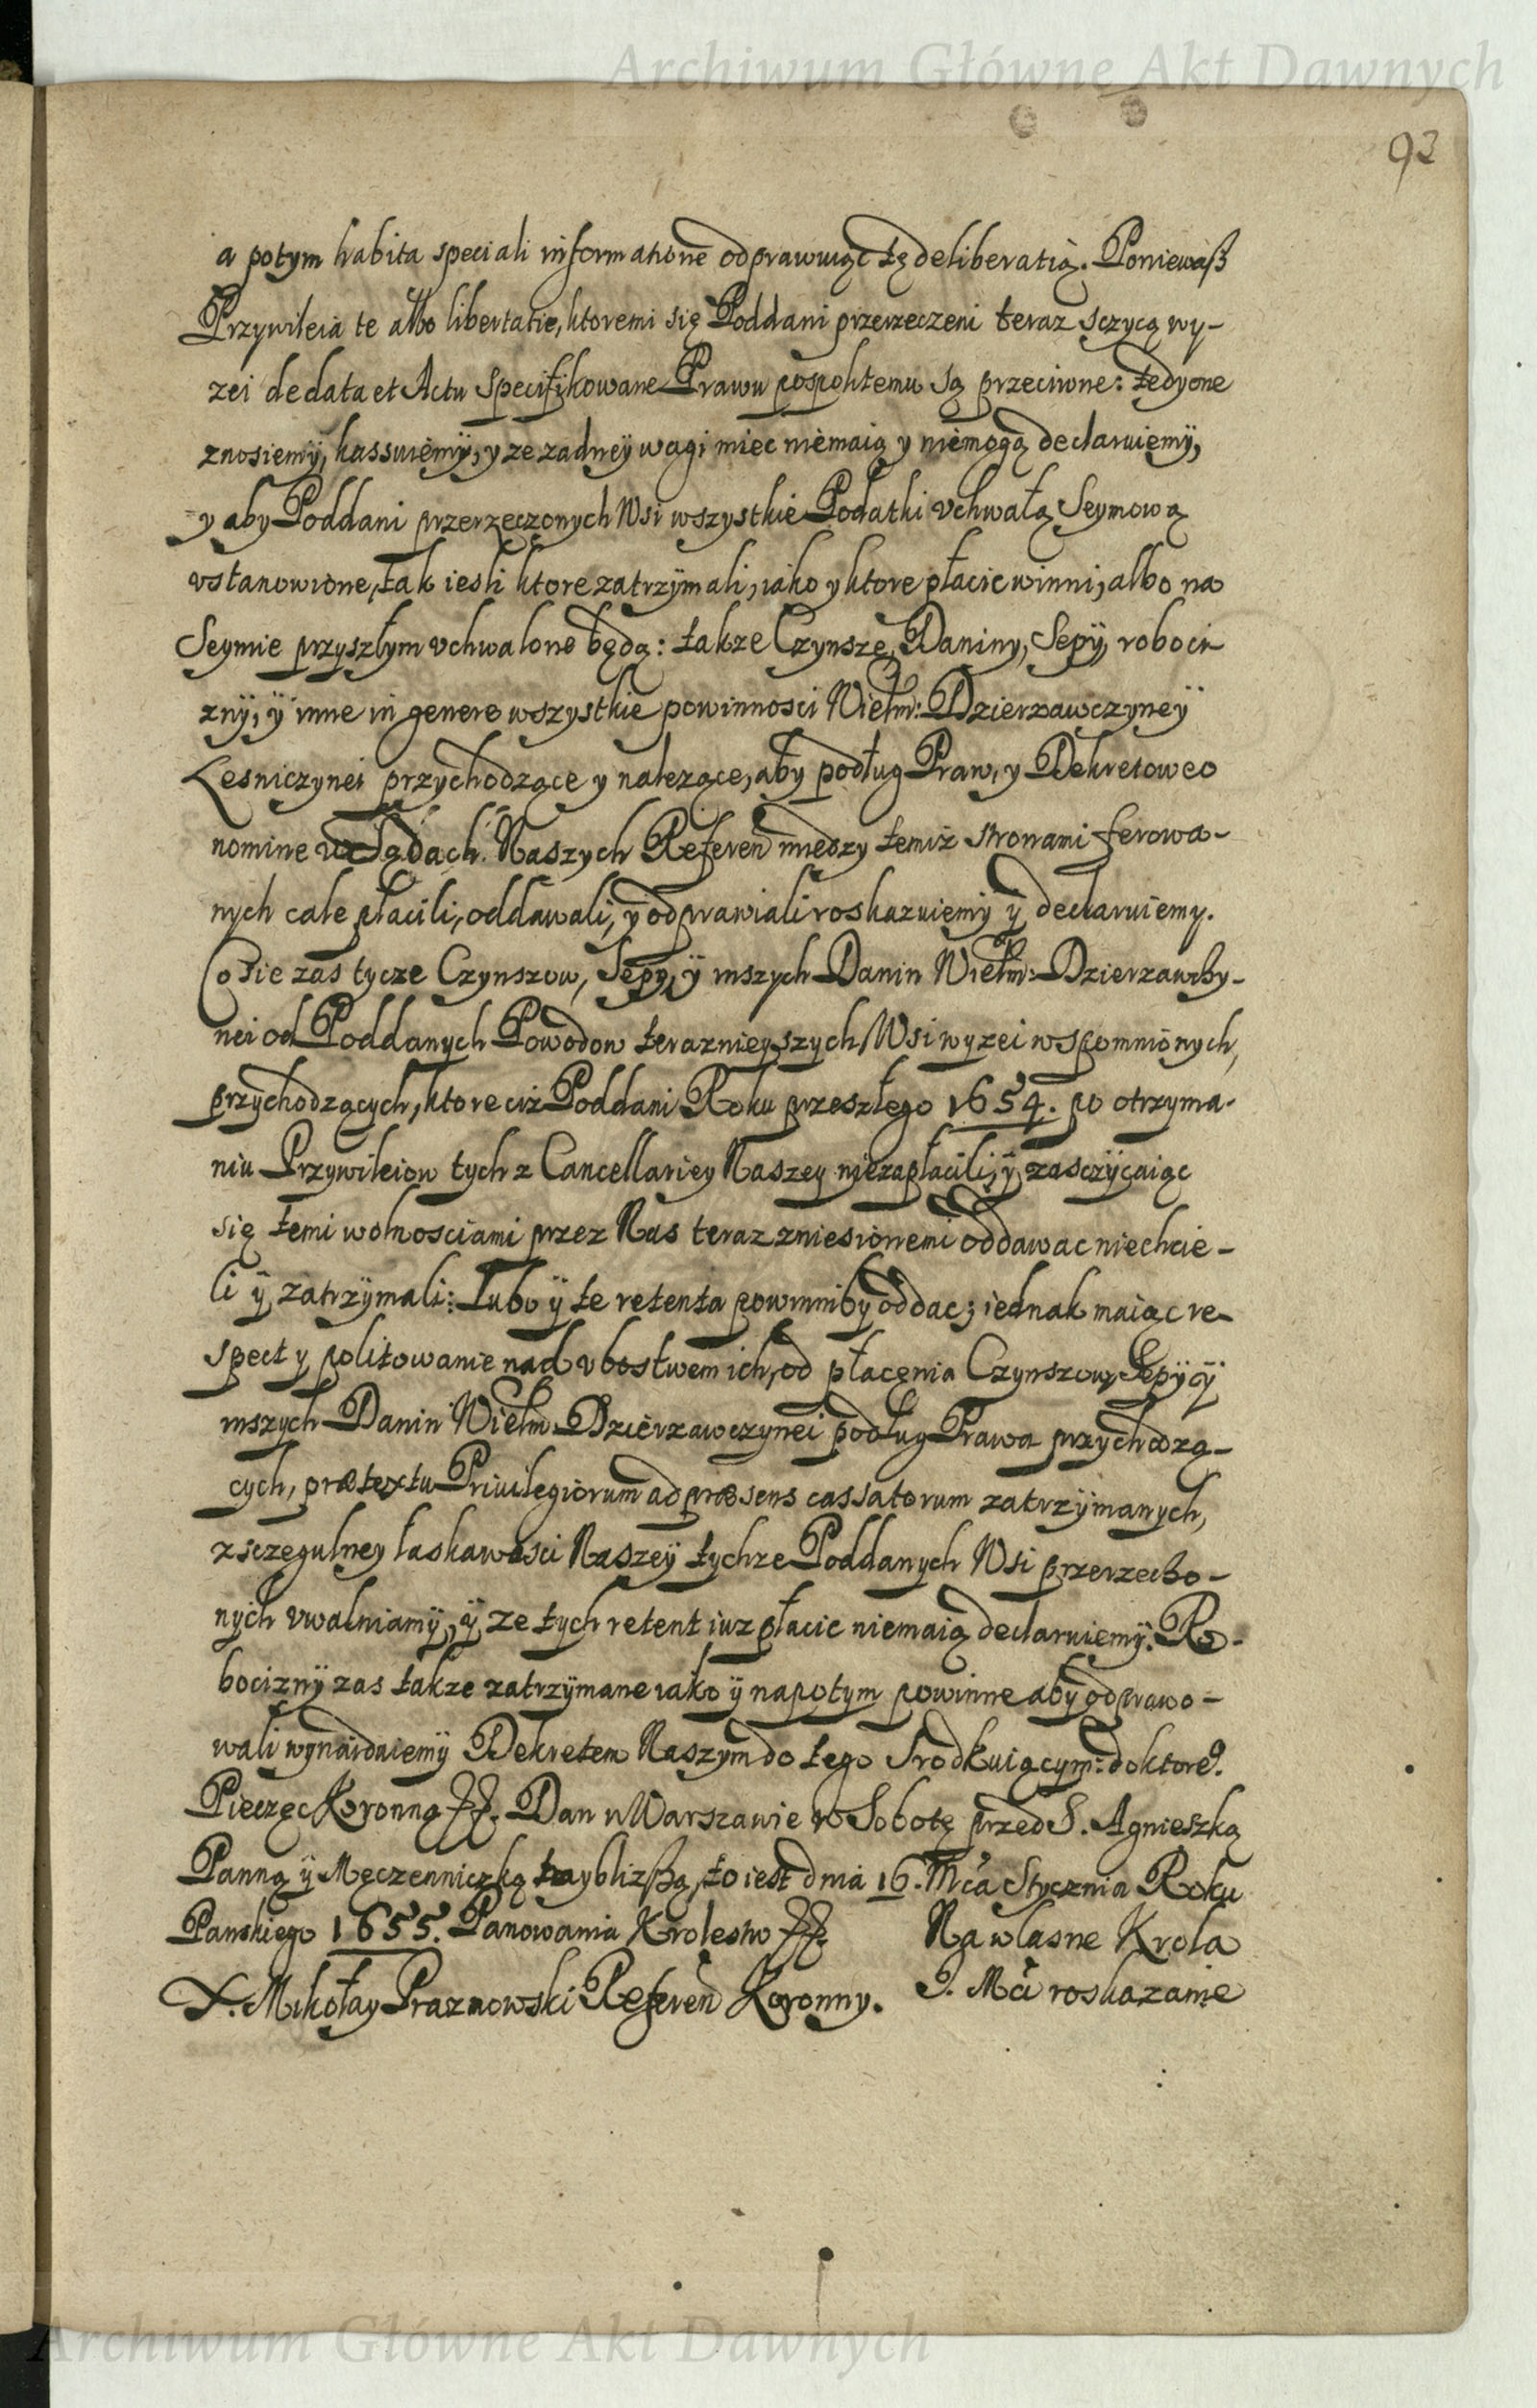 Archiwum Główne Akt Dawnych
93
a potym habita speciali informatione odprawuiąc tę deliberatią. Poniewaß
Przywileia te albo libertatie, ktoremi się Poddani przerzeczeni teraz sczycą wy-
zei de data et Actu specifikowane Prawu pospolitemu są przeciwne: tedy one
znosiemÿ, kassuiemÿ, y ze zadneÿ wagi miec niemaią y niemogą declaruiemÿ,
y aby Poddani przerzeczonych Wsi wszystkie Podatki vchwałą Seymową
vstanowione, tak iesli ktore zatrzÿmali, iako y ktore płacic winni, albo na
Seymie przyszłym vchwalone będą: takze Czynsze, Daniny, Sepÿ, roboci-
znÿ, ÿ inne in genere wszystkie powinnosci Wielm: Dzierzawczyneÿ
Lesniczynei przychodzące y nalezące, aby podług Praw, y Dekretow eo
nomine w Sądach Naszych Referen miedzy temiz stronami ferowa-
nych cale płacili, oddawali, ÿ odprawiali roskazuiemÿ ÿ declaruiemy.
Co sie zas tycze Czynszow, Sepÿ, ÿ inszych Danin Wielm: Dzierzawczy-
nei od Poddanych Powodow teraznieyszych Wsi wyzei wspomnionych,
przychodzących, ktore ciz Poddani Roku przeszłego 1654. po otrzyma-
niu Przywileiow tych z Cancellariey Naszey niezapłacili, ÿ zasczÿcaiąc
się temi wolnosciami przez Nas teraz zniesionemi oddawac niechcie-
li ÿ zatrzÿmali: Lubo ÿ te retenta powinnibÿ oddac; iednak maiąc re-
spect y politowanie nad vbostwem ich, od płacęnia Czynszow, Sepÿ ÿ
inszych Danin Wielm. Dzierzawczynei podług Prawa przychodzą-
cych, prætextu Priuilegiorum ad præsens cassatorum zatrzÿmanych,
z sczegulney łaskawosci Naszeÿ tychze Poddanych Wsi przerzeczo-
nÿch vwalniamÿ, ÿ ze tych retent iuz płacic niemaią declaruiemÿ. Ro-
bociznÿ zas takze zatrzÿmane iako ÿ napotym powinne abÿ odprawo-
wali wynaidaiemÿ Dekretem Naszym do tego Srodkuiącym: do ktore°.
Pieczęc Koronną ff. Dan w Warszawie w Sobotę przed S. Agnieszką
Panną ÿ Męczenniczką naybliżßą, to iest dnia 16. Mca Stycznia Roku
Panskiego 1655. Panowania Krolestw ff. Na wlasne Krola
X. Mikołay Prazmowski Referen Koronny. J. Mci roskazanie
Archiwum Główne Akt Dawnych